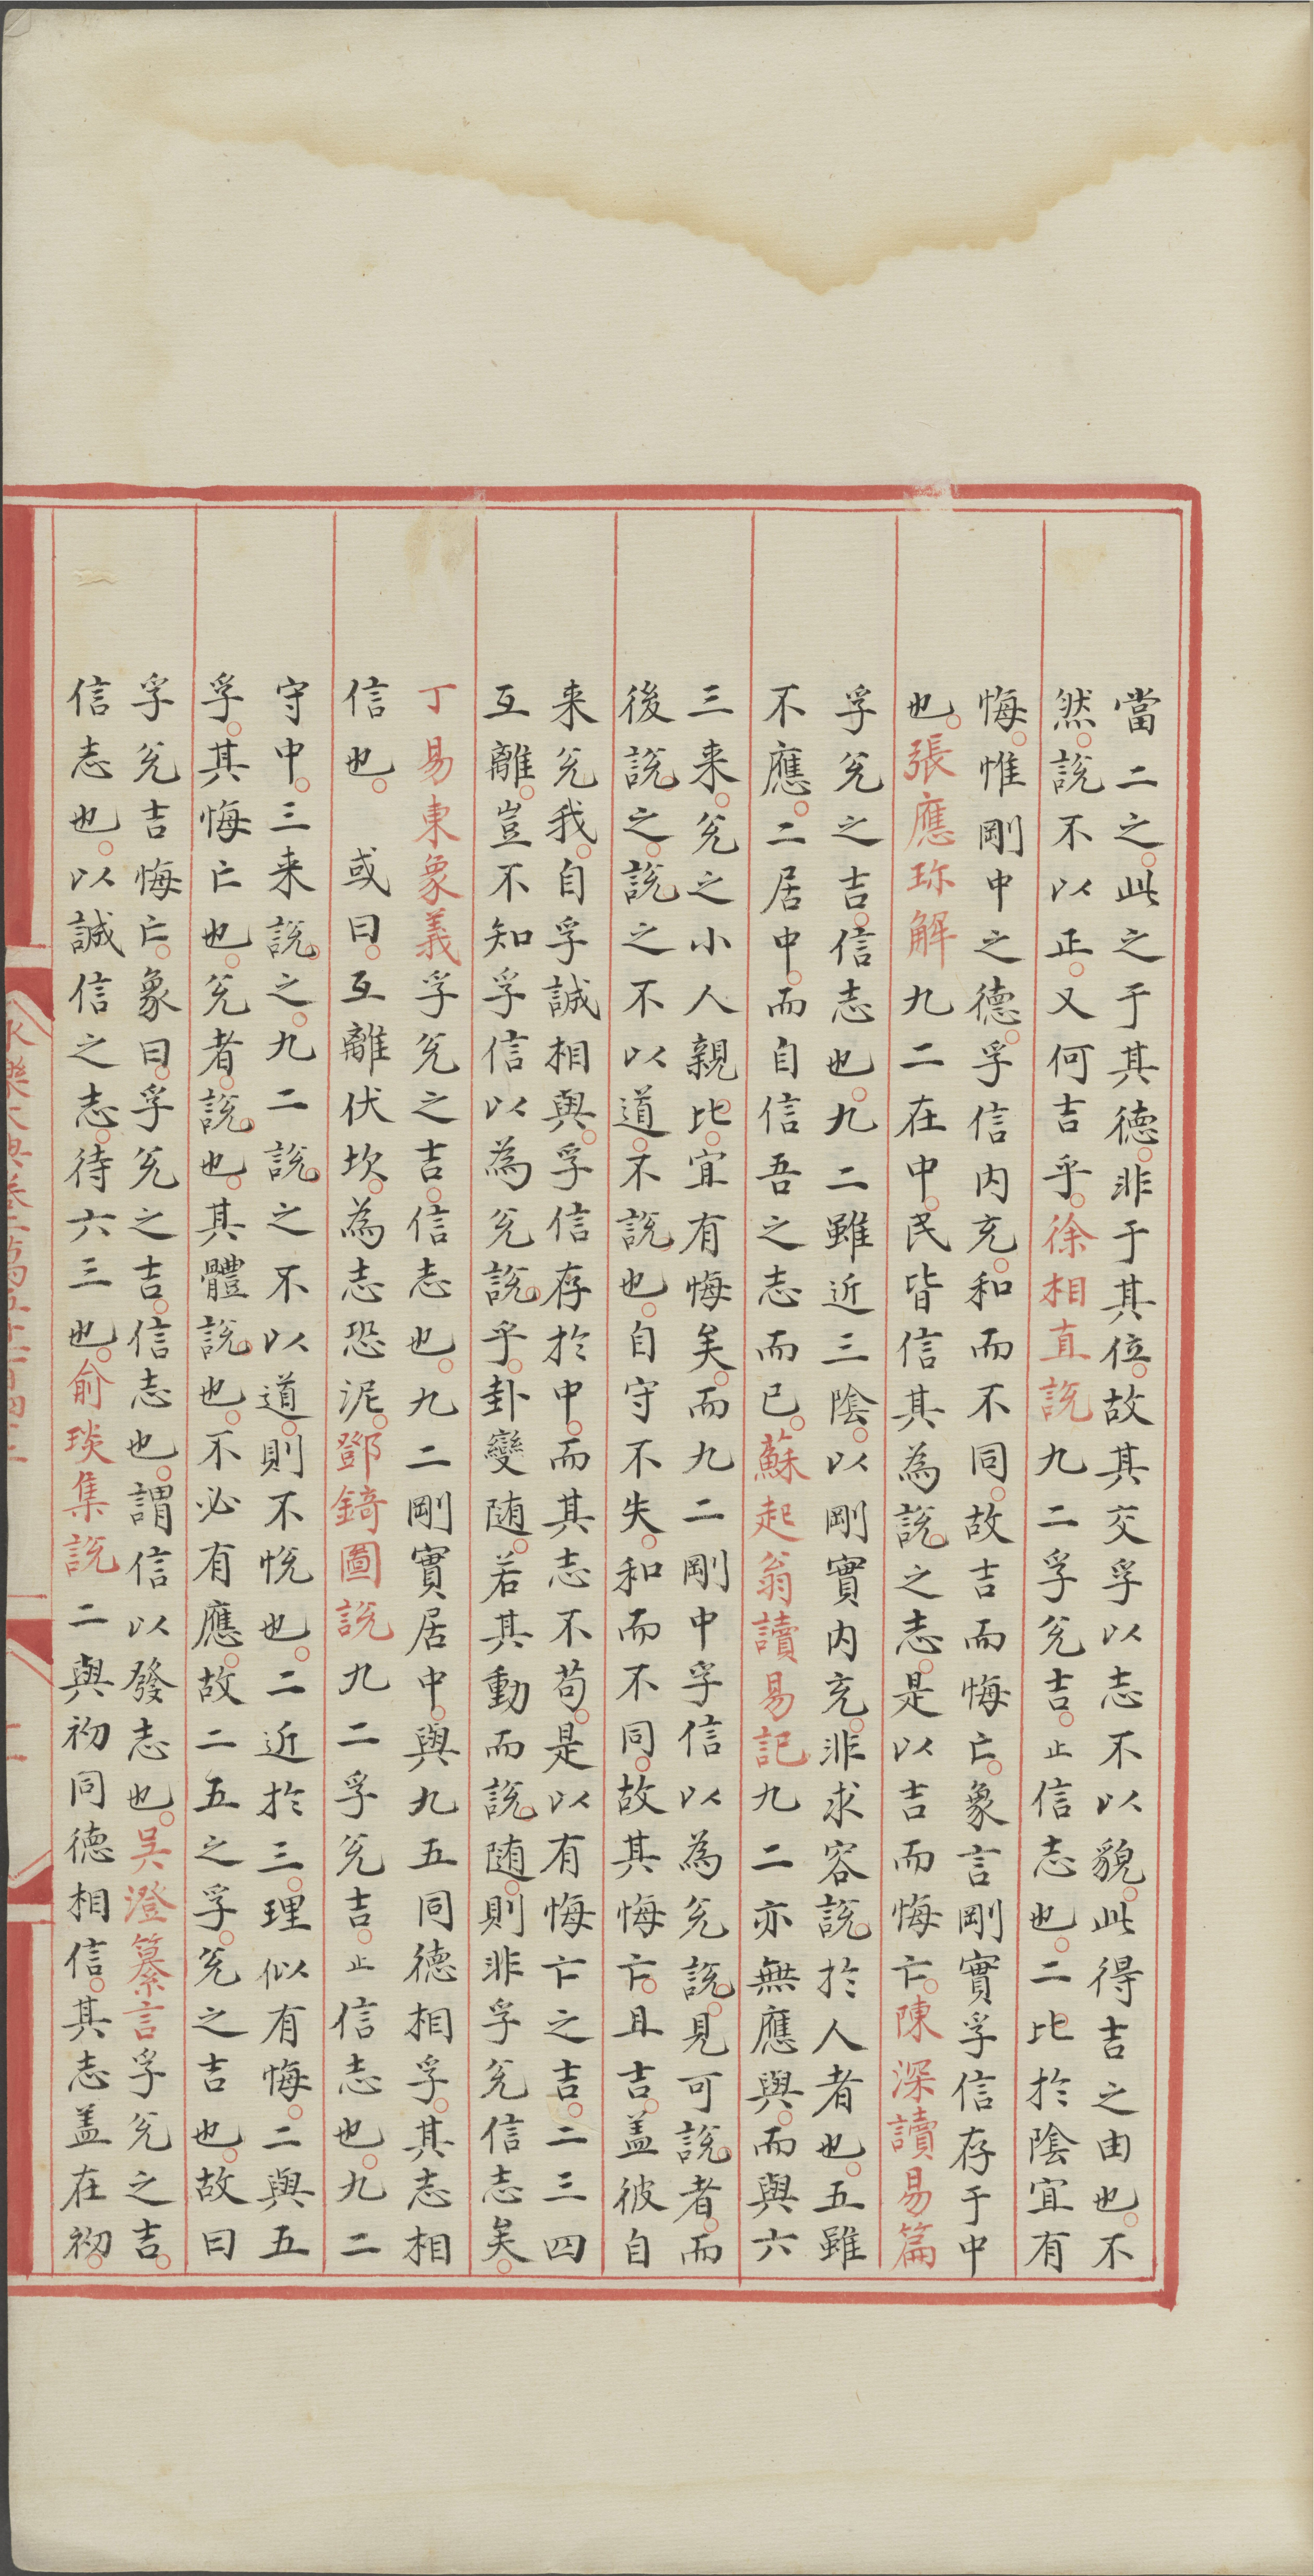 當二之。此之于其德。非于其位。故其交孚以志不以貌。此得吉之由也。不
然。說不以正。又何吉乎。徐相直說九二孚兊吉。止信志也。二比於陰宜有
悔。惟剛中之德。孚信内充。和而不同。故吉而悔亡。象言剛實孚信存于中
也。張應珎解九二在中。民皆信其為說之志。是以吉而悔亡。陳深讀易篇
孚兊之吉。信志也。九二雖近三陰。以剛實内充。非求容說於人者也。五雖
不應。二居中。而自信吾之志而已。蘇起翁讀易記九二亦無應與。而與六
三来。兊之小人親比。宜有悔矣。而九二剛中孚信以為兊說。見可說者。而
後說之。說之不以道。不說也。自守不失。和而不同。故其悔亡。且吉。盖彼自
来兊我。自孚誠相與。孚信存於中。而其志不苟。是以有悔亡之吉。二三四
互離。豈不知孚信以為兊說乎。卦變随。若其動而說。随。則非孚兊信志矣。
丁易東象義孚兊之吉。信志也。九二剛實居中。與九五同德相孚。其志相
信也。　或曰。互離伏坎。為志恐泥。鄧錡圖說九二孚兊吉。止信志也。九二
守中。三来說之。九二說之不以道。則不悅也。二近於三。理似有悔。二與五
孚。其悔亡也。兊者。說也。其體說也。不必有應。故二五之孚。兊之吉也。故曰
孚兊吉悔亡。象曰。孚兊之吉。信志也。謂信以發志也。吴澄纂言孚兊之吉。
信志也。以誠信之志。待六三也。俞琰集說二與初同德相信。其志盖在初。